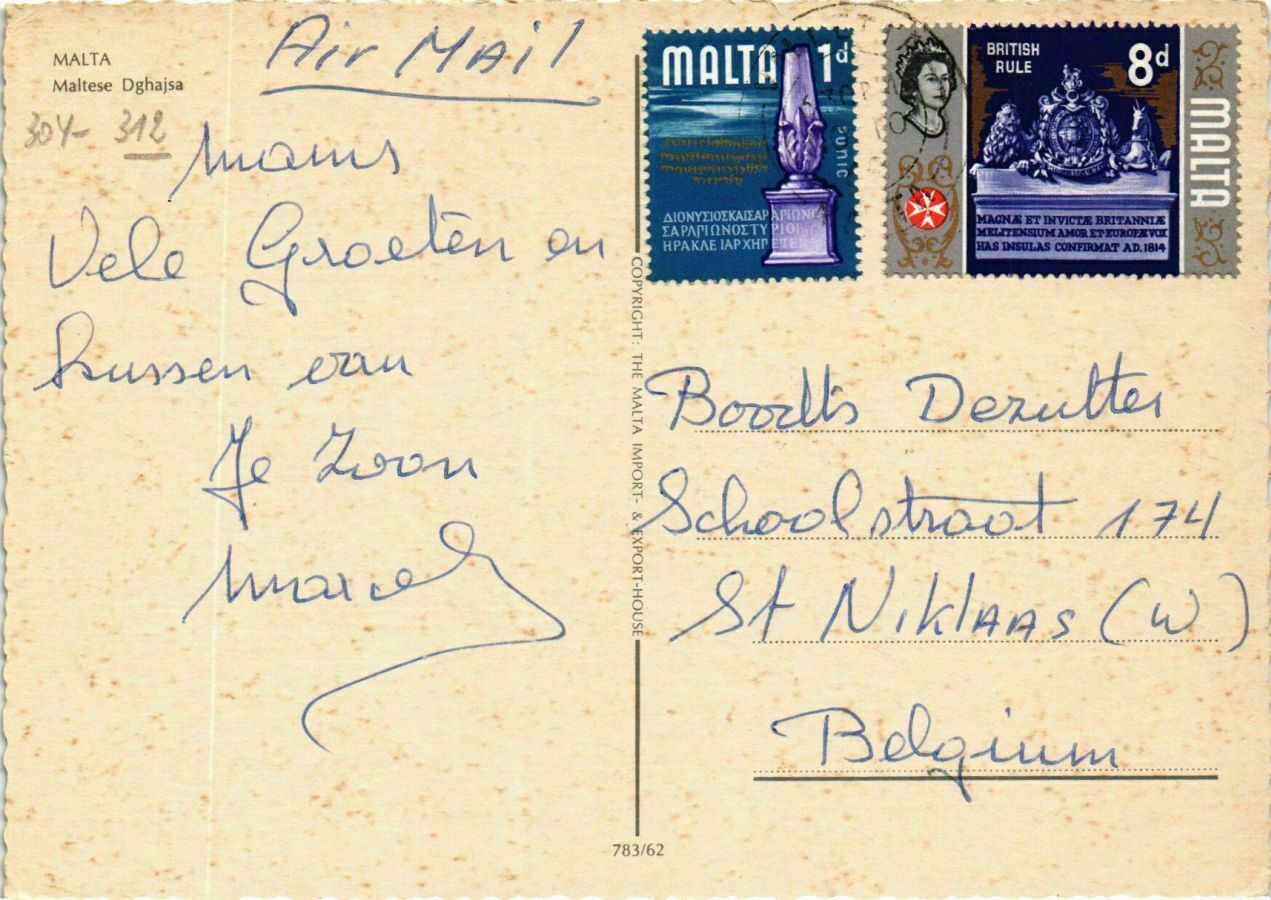 MALTA
Maltese Dghajsa
304- 312
Air Mail
Mams
Vele Groeten en
kussen van
Je Zoon
Marcel
MALTA 1d
PUNIC
ΔΙΟΝΥΣΙΟΣΚΑΙΣΑΡΑΠΙΩΝΟΙ
ΣΑΡΑΠΙΩΝΟΣΤΥΡΙΟΙ
ΗΡΑΚΛΕΙ ΑΡΧΗΓΕΤΕΙ
BRITISH
RULE
8d
MALTA
MAGNÆ ET INVICTÆ BRITANNIÆ
MELITENSIUM AMOR ET EUROPÆ VOX
HAS INSULAS CONFIRMAT A.D. 1814
COPYRIGHT: THE MALTA IMPORT- & EXPORT-HOUSE
Boodts Dezutter
Schoolstraat 174
St Niklaas (W)
Belgium
783/62